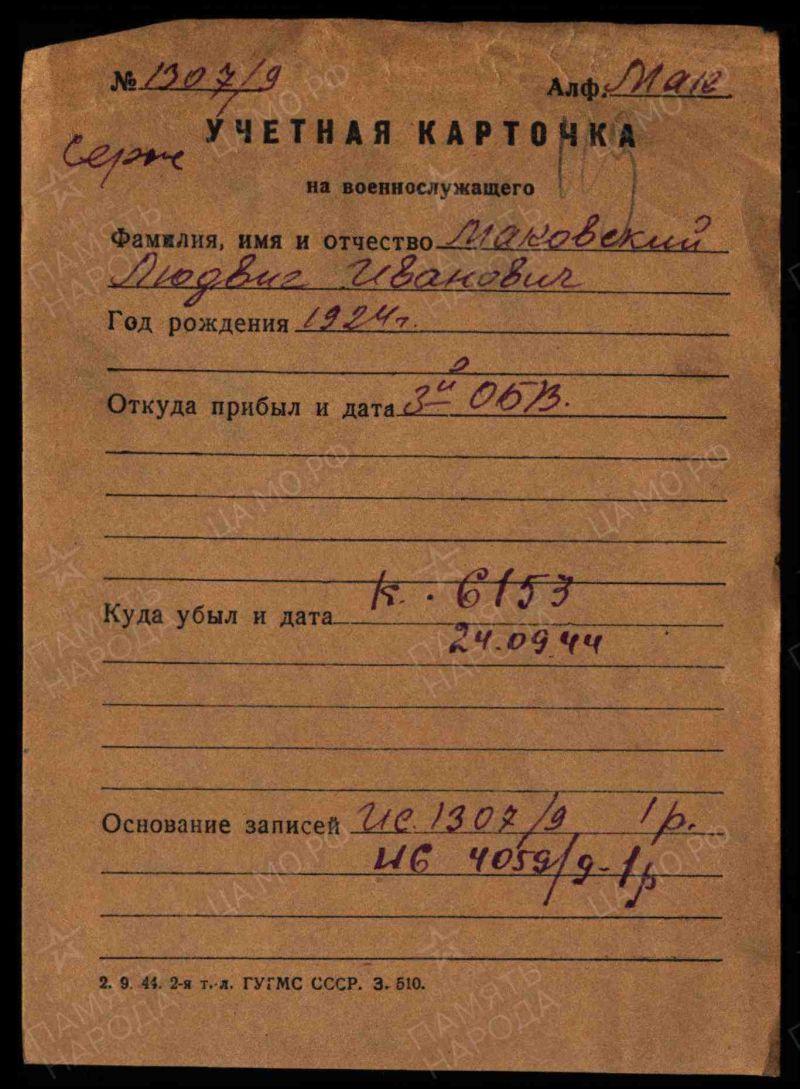 № 1307/9 Алф. Мак
УЧЕТНАЯ КАРТОЧКА
Серж
на военнослужащего
Фамилия, имя и отчество Маковский
Людвиг Иванович
Год рождения 1924 г.
Откуда прибыл и дата 3й ОБВ.
К. 6153
Куда убыл и дата
24.09 44
Основание записей ис. 1307/9 1р.
ИС 4059/9-1р
2. 9. 44. 2-я т.-л. ГУГМС СССР. З. 510.
ПАМЯТЬ НАРОДА
ЦАМО.РФ